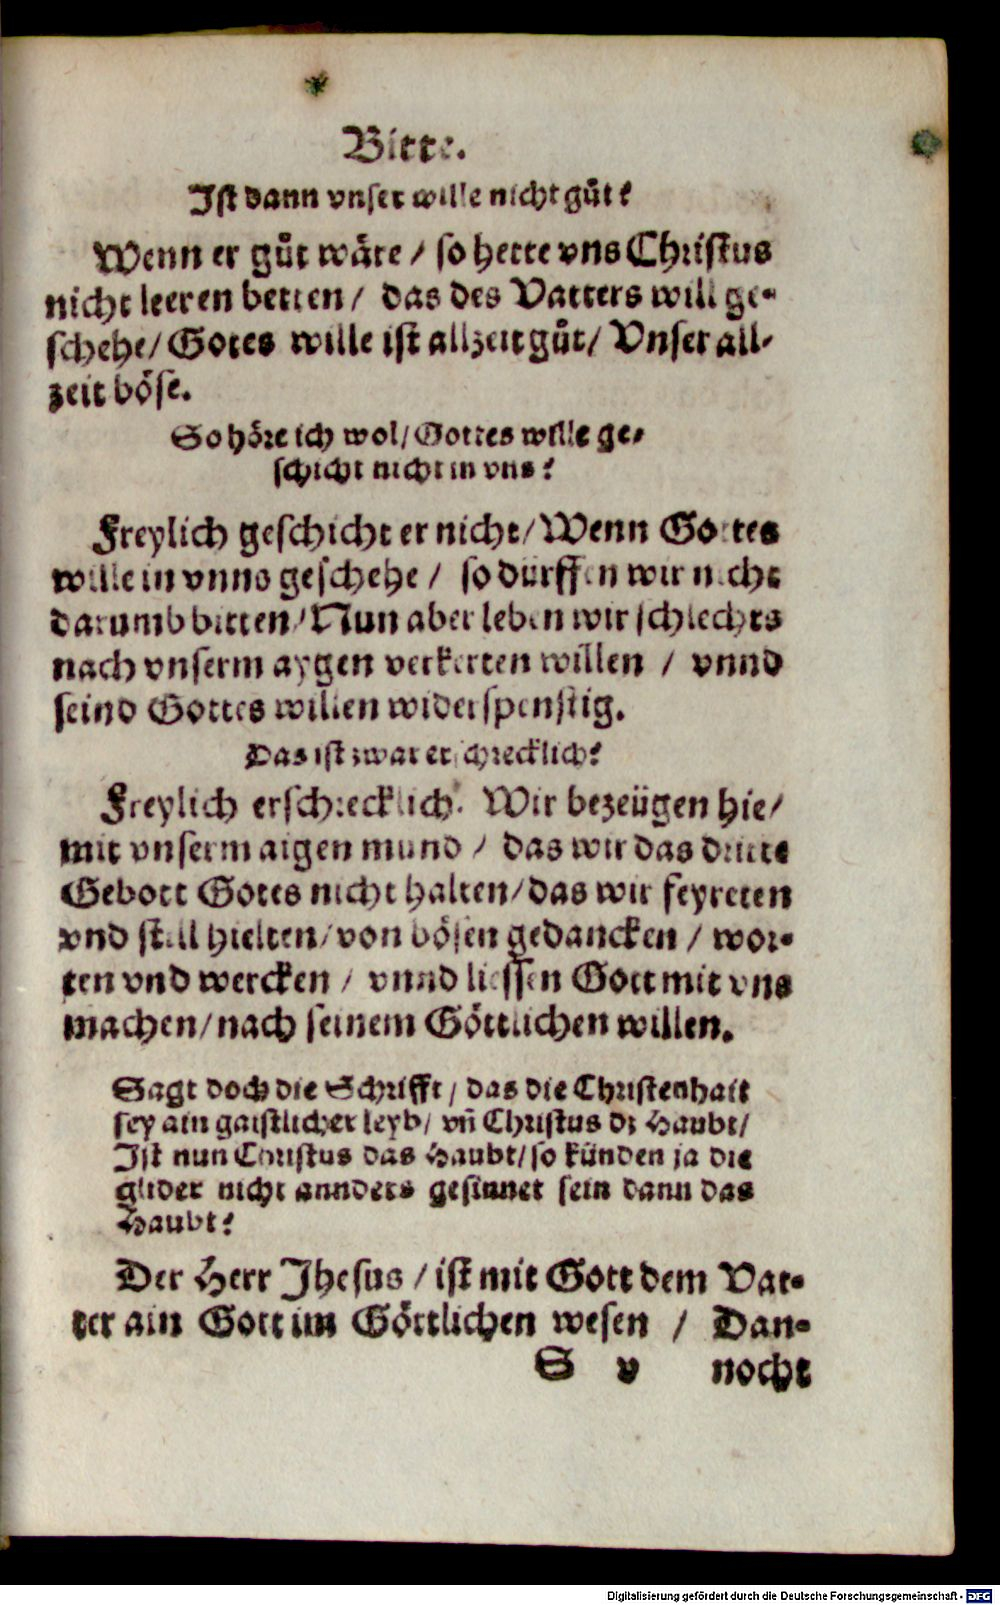 Bitte.
Ist dann vnser wille nicht gůt?
Wenn er gůt wäre / so hette vns Christus
nicht leeren betten / das des Vatters will ge-
schehe / Gotes wille ist allzeit gůt / Vnser all-
zeit böse.
So höre ich wol / Gottes wille ge-
schicht nicht in vns?
Freylich geschicht er nicht / Wenn Gottes
wille in vnns geschehe / so dürffen wir nicht
darumb bitten / Nun aber leben wir schlechts
nach vnserm aygen verkerten willen / vnnd
seind Gottes willen widerspenstig.
Das ist zwar erschrecklich?
Freylich erschrecklich. Wir bezeügen hie /
mit vnserm aigen mund / das wir das dritte
Gebott Gotes nicht halten / das wir feyreten
vnd still hielten / von bösen gedancken / wor-
ten vnd wercken / vnnd liessen Gott mit vns
machen / nach seinem Göttlichen willen.
Sagt doch die Schrifft / das die Christenhait
sey ain gaistlicher leyb / vñ Christus dz Haubt /
Ist nun Christus das Haubt / so künden ja die
glider nicht annders gesinnet sein dann das
Haubt?
Der Herr Jhesus / ist mit Gott dem Vat-
ter ain Gott im Göttlichen wesen / Dan-
S v nocht
Digitalisierung gefördert durch die Deutsche Forschungsgemeinschaft - DFG